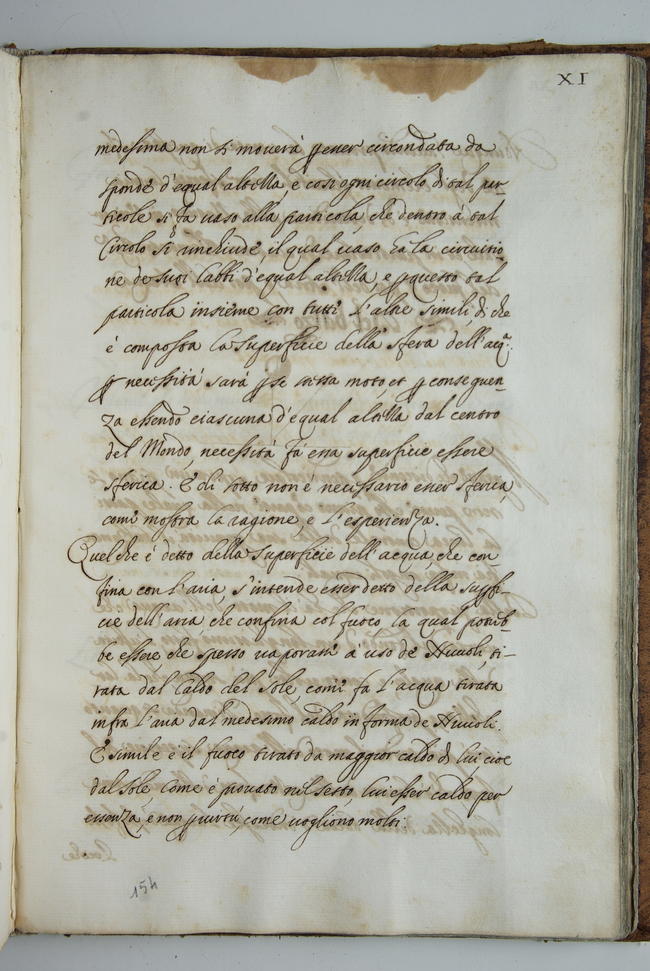 XI
medesima non si moverà p esser circondata da
sponde d'equal altezza, e cosi ogni circolo di tal par-
ticole si fa vaso alla particola, che dentro à tal
Circolo si rinchiude, il qual vaso hà la circuitio-
ne de suoi labbi d'equal altezza, e p questo tal
particola insieme con tutte l'altre simili, di che
è composta la superficie della sfera dell'acq.ª
p necessità sarà p se senza moto, et p conseguen-
za essendo ciascuna d'equal altezza dal centro
del Mondo, necessità fà essa superficie essere
sferica. E di sotto non è necessario esser sferica,
come mostra la ragione, e l'esperienza.
Quel che è detto della superficie dell'acqua, che con-
fina con l'aria, s'intende esser detto della supfi-
cie dell'aria, che confina col fuoco, la qual potreb-
be essere, che spesso vaporassi à uso de Nuvoli, ti-
rata dal Caldo del Sole, come fa l'acqua tirata
infra l'aria dal medesimo caldo in forma de Nuvoli.
E simile è il fuoco tirato da maggior caldo di lui cioè
dal Sole, come è provato nel sesto, lui esser caldo per
essenza, e non p virtù, come vogliono molti.
154